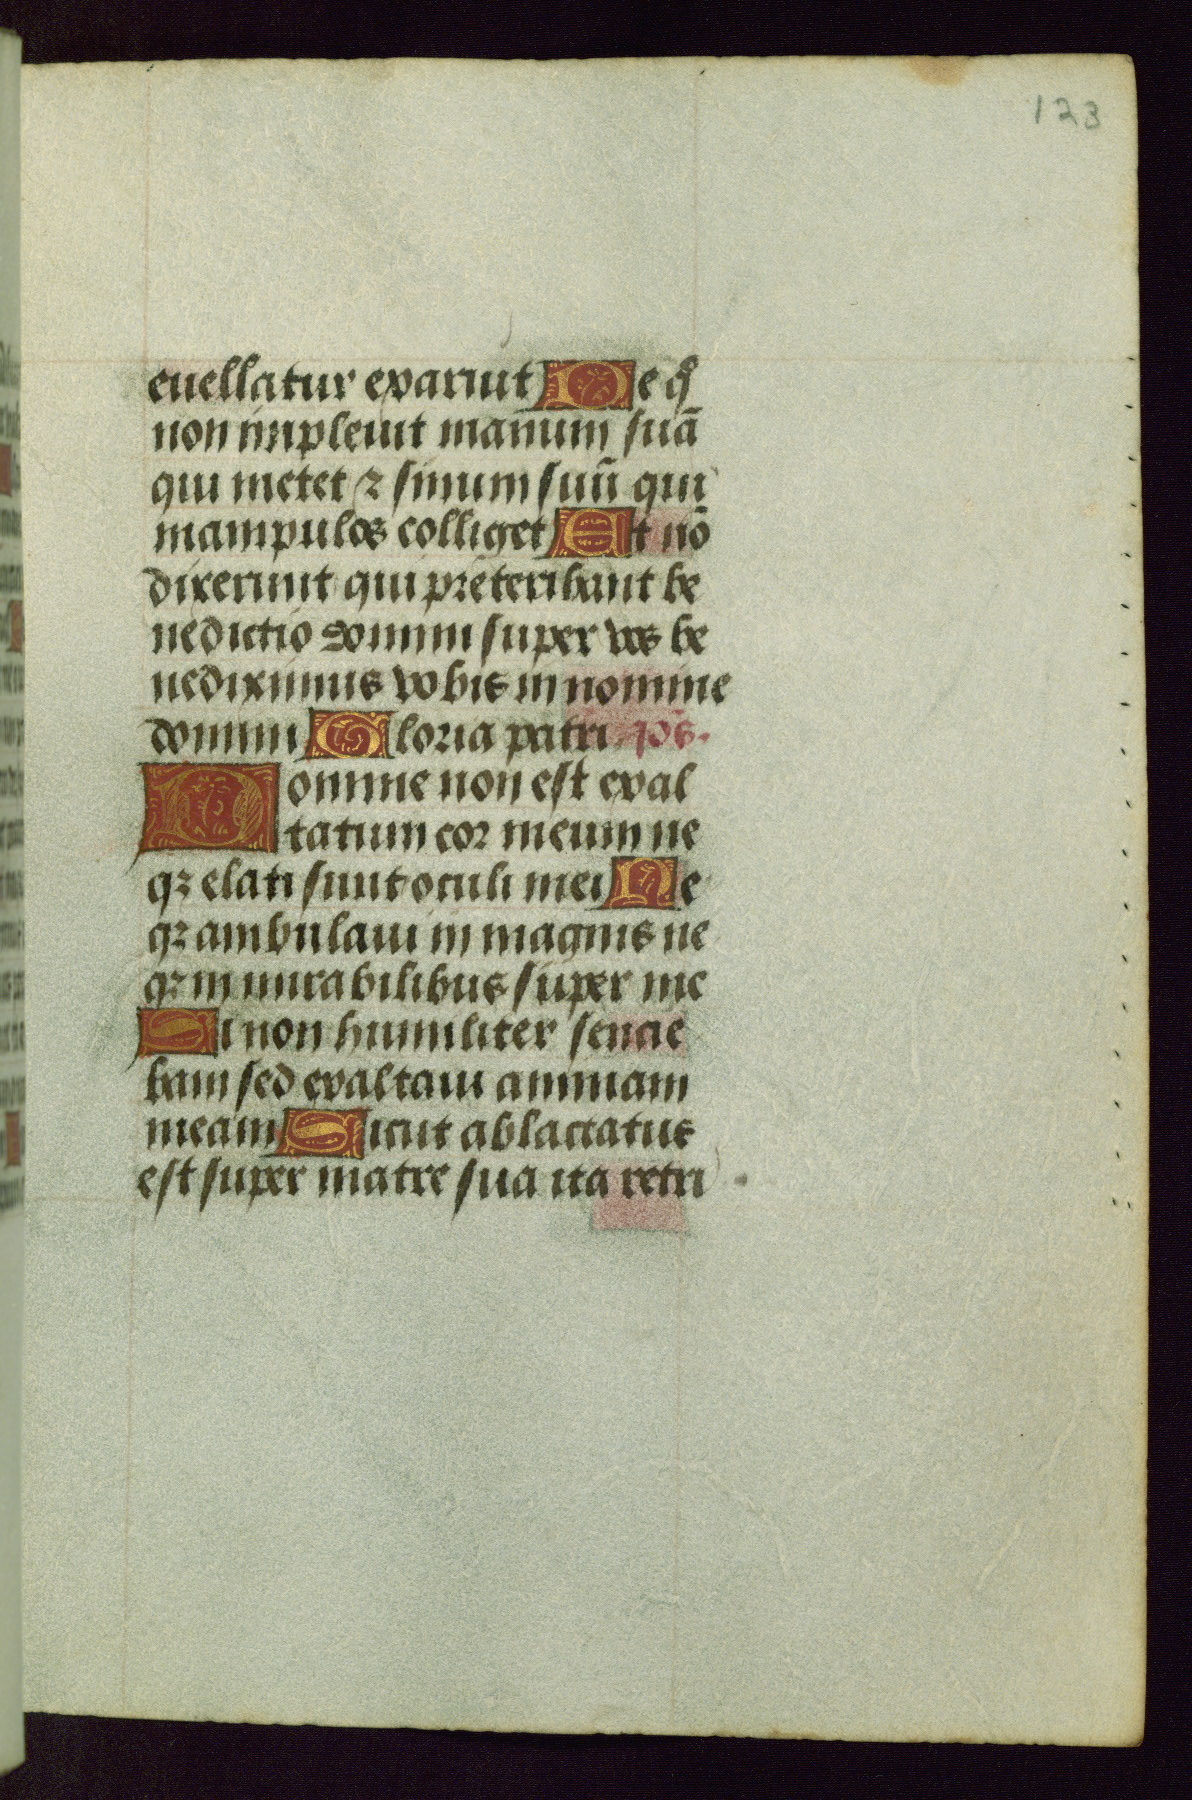 123
euellatur exaruit De q̃
non impleuit manum suã
qui metet ⁊ sinum suũ qui
manipulos colliget Et nõ
dixerunt qui preteribant be
nedictio domini super vos be
nediximus vobis in nomine
domini Gloria patri. ps̃.
Domine non est exal
tatum cor meum ne
qꝫ elati sunt oculi mei Ne
qꝫ ambulaui in magnis ne
qꝫ in mirabilibus super me
Si non humiliter sencie
bam sed exaltaui animam
meam Sicut ablactatus
est super matre sua ita retri